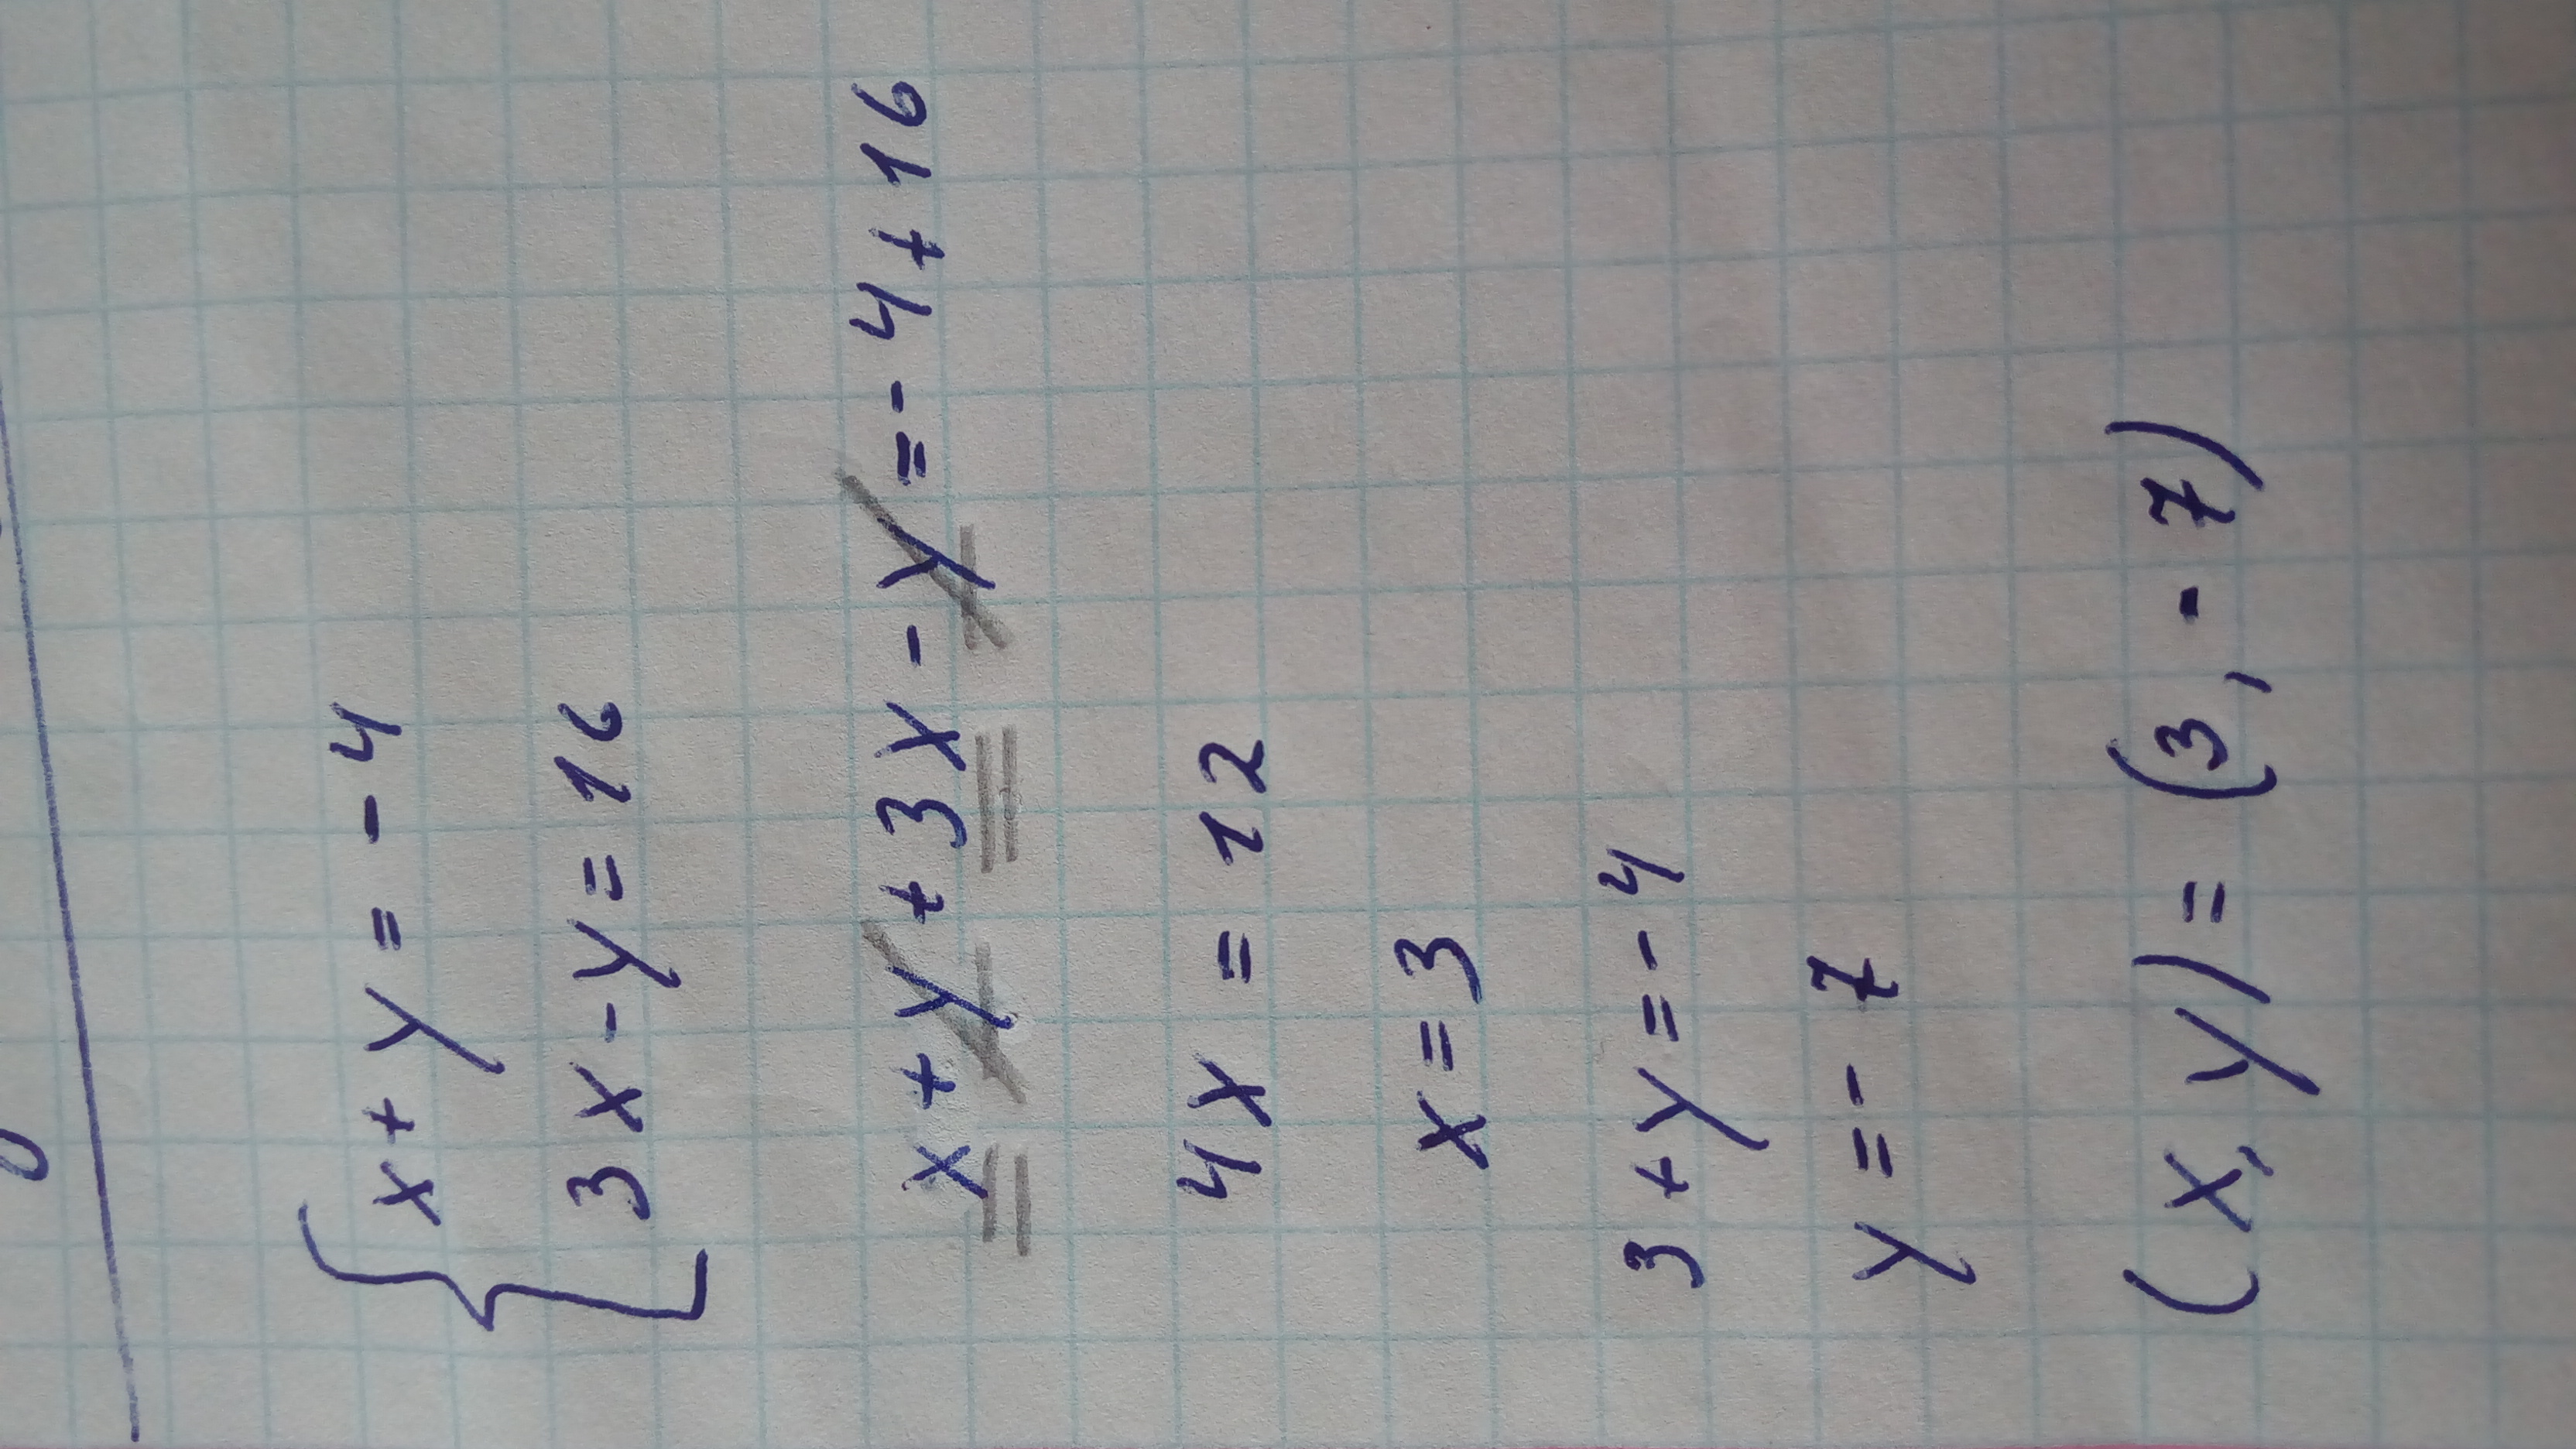 x + y = - 4
3x - y = 16
x + y + 3x - y = - 4 + 16
4x = 12
x = 3
3 + y = - 4
y = - 7
(x, y) = (3, - 7)